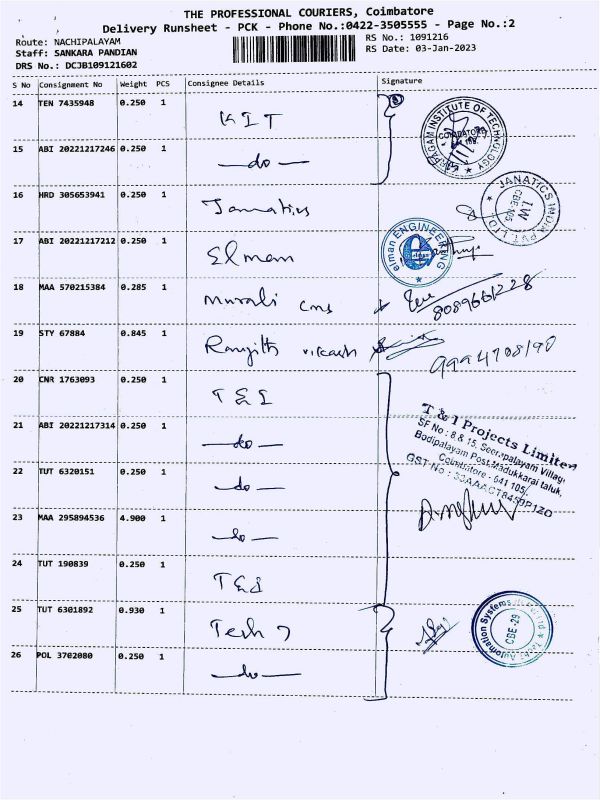 THE PROFESSIONAL COURIERS, Coimbatore
Delivery Runsheet - PCK - Phone No.:0422-3505555 - Page No.:2
Route: NACHIPALAYAM
RS No.: 1091216
Staff: SANKARA PANDIAN
RS Date: 03-Jan-2023
DRS No.: DCJB109121602
S No Consignment No Weight PCS Consignee Details Signature
14 TEN 7435948 0.250 1 KIT
15 ABI 20221217246 0.250 1 -do-
16 HRD 305653941 0.250 1 Jannatics
17 ABI 20221217212 0.250 1 Elman
18 MAA 570215384 0.285 1 Murali cms
19 STY 67884 0.845 1 Ranjith
20 CNR 1763093 0.250 1 T&I
21 ABI 20221217314 0.250 1 -do-
22 TUT 6320151 0.250 1 -do-
23 MAA 295894536 4.900 1 -do-
24 TUT 190839 0.250 1 T&I
25 TUT 6301892 0.930 1 Tech
26 POL 3702080 0.250 1 -do-
INSTITUTE OF TECHNOLOGY
COIMBATORE
JANATICS INDIA PVT LTD
I/W
CBE 105
elman ENGINEERING
8089661228
T & I Projects Limited
SF No : 8 & 15, Seerapalayam Village
Bodipalayam Post, Madukkarai taluk,
Coimbatore - 641 105.
GST No : 33AAACT8459P1ZO
Automation Systems
CBE-29